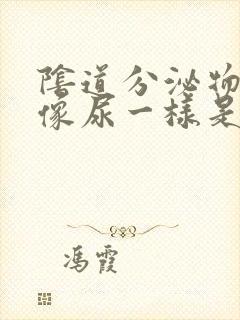 陰道分泌物
像尿一樣是
馮霞